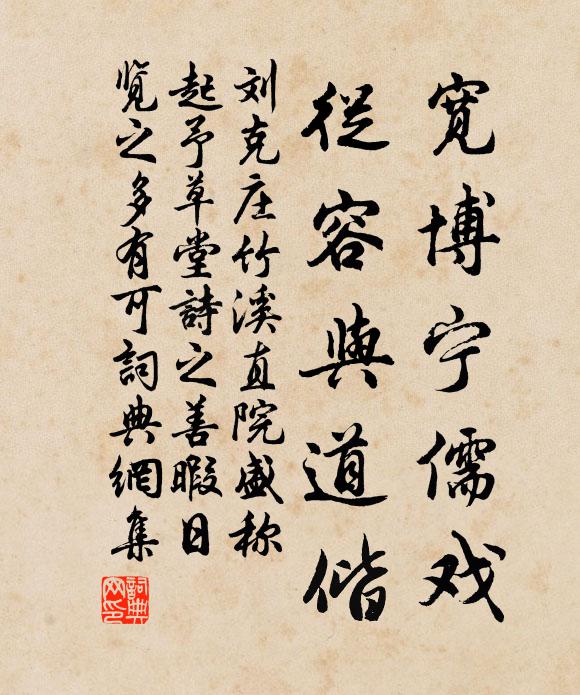 寛博宁儒戏
從容與道偕
刘克庄竹溪直院盛称
起予草堂詩之善暇日
覧之多有可詞典網集
詞典